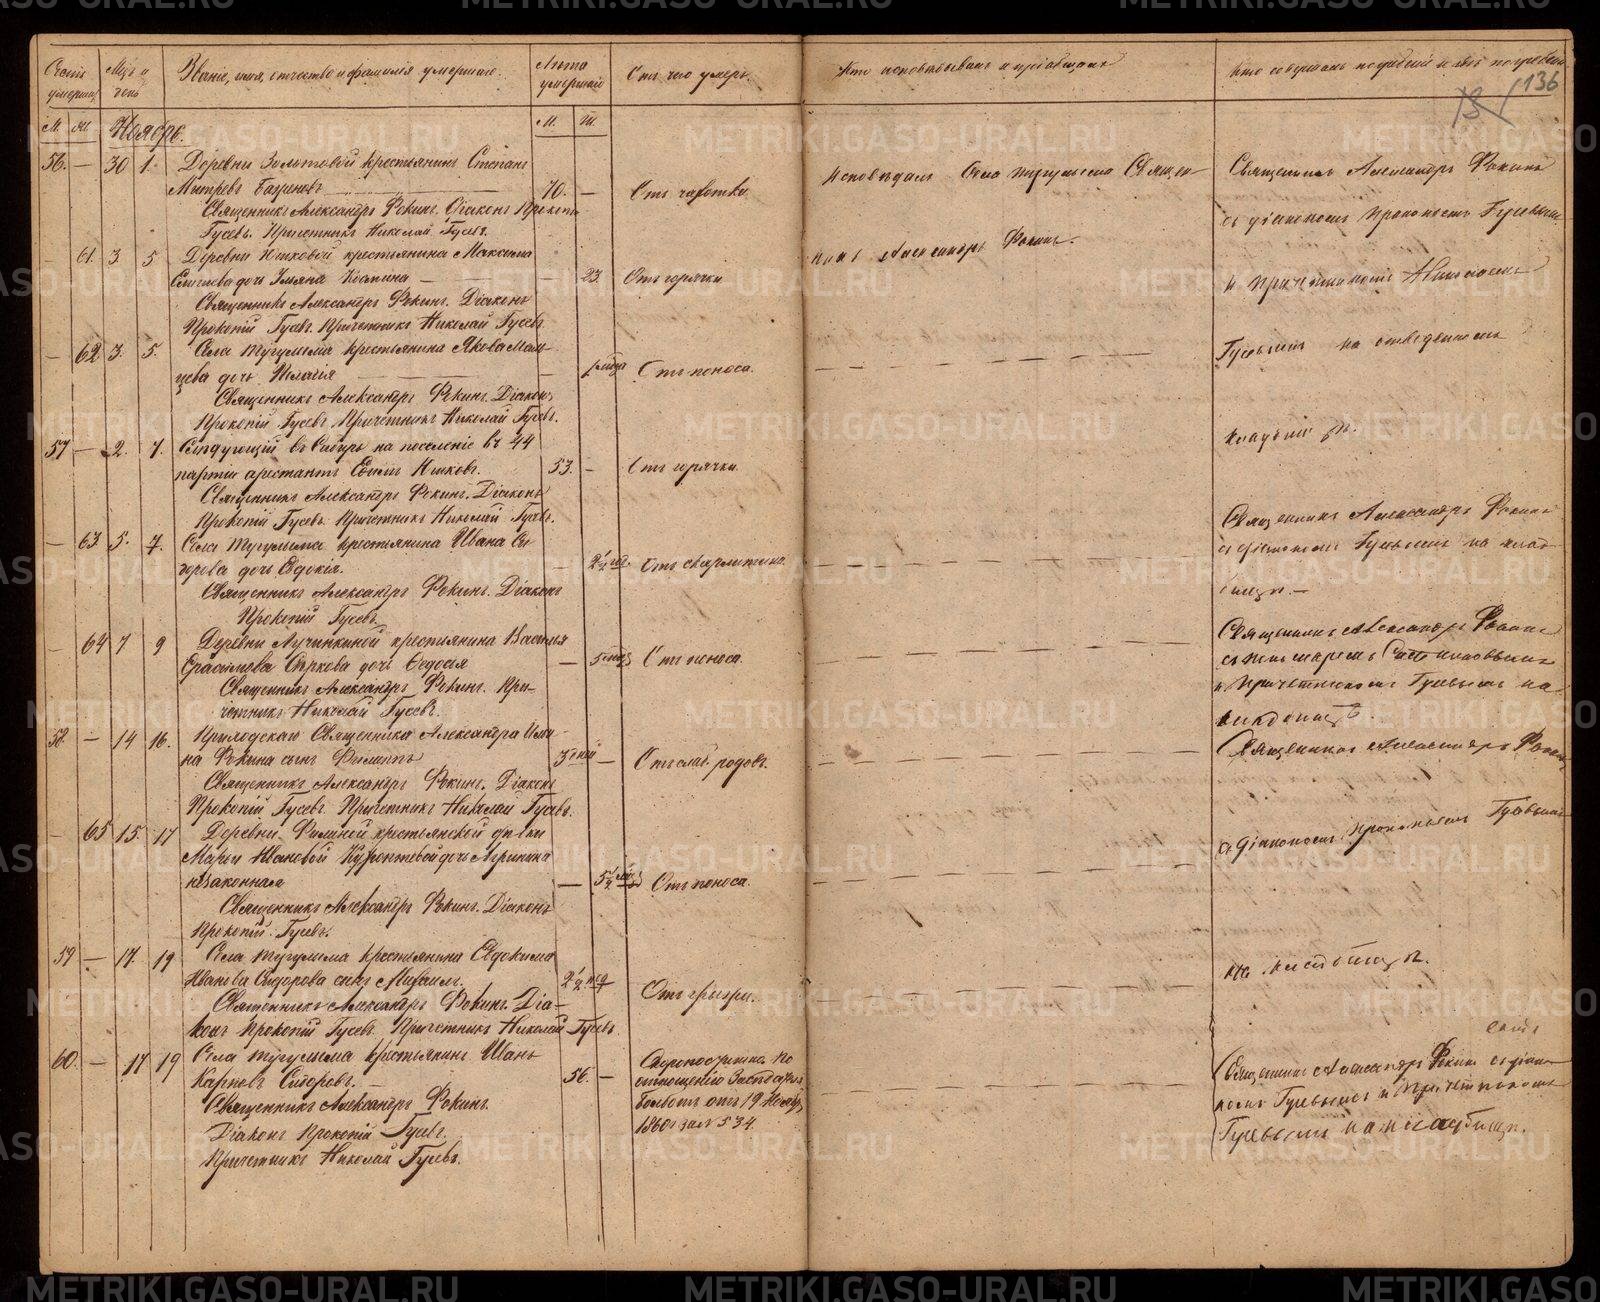 Счетъ умершихъ
Мѣс. и день
Званіе, имя, отчество и фамилія умершаго.
Лѣта умершаго
Отъ чего умеръ.
Кто исповѣдывалъ и пріобщалъ
Кто совершалъ погребеніе и гдѣ погребены
136
М. Ж. Ноябрь. М. Ж.
56. — 30 1. Деревни Золотовой крестьянинъ Степанъ
70. — Отъ чахотки.
Исповѣдалъ Села Тугулыма Священ-
Священникъ Александръ Фокинъ
Священникъ Александръ Фокинъ. Діаконъ Прокопій
Гусевъ. Причетникъ Николай Гусевъ.
съ діакономъ Прокопіемъ Гусевым
никъ Александръ Фокинъ.
— 61. 3 5 Деревни Юшковой крестьянина Максима
дочь Ульяна — 23. Отъ горячки
и Причетникомъ Николаемъ
Священникъ Александръ Фокинъ. Діаконъ
Прокопій Гусевъ. Причетникъ Николай Гусевъ.
— 62 3. 5. Села Тугулыма крестьянина Якова Маль-
цева дочь Пелагія — Отъ поноса.
Гусевымъ на отведенномъ
Священникъ Александръ Фокинъ. Діаконъ
Прокопій Гусевъ. Причетникъ Николай Гусевъ.
57 — 2. 7. Слѣдующій въ Сибирь на поселеніе въ 44
партіи арестантъ 53. — Отъ горячки.
Священникъ Александръ Фокинъ. Діаконъ
Прокопій Гусевъ. Причетникъ Николай Гусевъ.
Священникъ Александръ Фокинъ
— 63 5. 7. Села Тугулыма крестьянина Ивана Си-
дорова дочь Евдокія. — Отъ скарлатины.
съ діакономъ Гусевымъ на клад-
бищѣ. —
Священникъ Александръ Фокинъ. Діаконъ
Прокопій Гусевъ.
— 64 7 9 Деревни Лучинкиной крестьянина Василья
дочь Ѳедосія — Отъ поноса.
Священникъ Александръ Фокинъ
и Причетникомъ Гусевымъ на
кладбищѣ.
Священникъ Александръ Фокинъ. При-
четникъ Николай Гусевъ.
58. — 14 16. Приходскаго Священника Александра
Фокина сынъ Филиппъ 3 дней — Отъ слаб. родовъ.
Священникъ Александръ Фокинъ
Священникъ Александръ Фокинъ. Діаконъ
Прокопій Гусевъ. Причетникъ Николай Гусевъ.
съ діакономъ Прокопіемъ Гусевымъ
— 65 15. 17 Деревни Филиной крестьянской дѣвки
Марьи Ивановой дочь Агрипина
незаконная — Отъ поноса.
Священникъ Александръ Фокинъ. Діаконъ
Прокопій Гусевъ.
59 — 17. 19 Села Тугулыма крестьянина Евдокима
Иванова Сидорова сынъ Михаилъ. Отъ грыжи.
на кладбищѣ.
Священникъ Александръ Фокинъ. Діа-
конъ Прокопій Гусевъ. Причетникъ Николай Гусевъ
60. — 17 19 Села Тугулыма крестьянинъ Иванъ
Карповъ Сидоровъ. — 56. — Скоропостижно. По
отношенію Засѣдателя
отъ 19 Нояб.
1860 г. за № 534.
Священникъ Александръ Фокинъ.
Діаконъ Прокопій Гусевъ.
Причетникъ Николай Гусевъ.
Священникъ Александръ Фокинъ съ діако-
номъ Гусевымъ и Причетникомъ
Гусевымъ на кладбищѣ.
METRIKI.GASO-URAL.RU